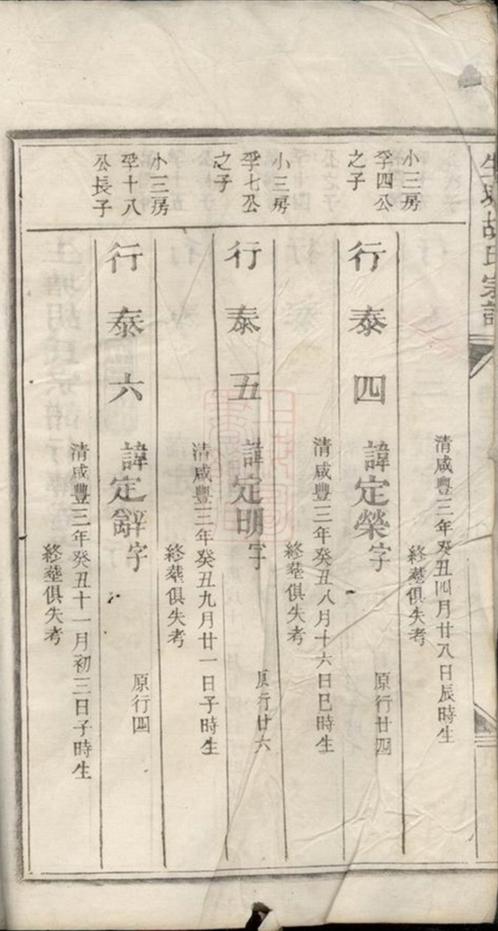 胡氏宗譜
清咸豐三年癸丑四月廿八日辰時生
終塟俱失考
小三房
孚四公
之子
行泰四
諱定榮字
原行廿四
清咸豐三年癸丑八月十六日巳時生
終塟俱失考
小三房
孚七公
之子
行泰五
諱定明字
原行廿六
清咸豐三年癸丑九月廿一日子時生
終塟俱失考
小三房
孚十八
公長子
行泰六
諱定辭字
原行四
清咸豐三年癸丑十一月初三日子時生
終塟俱失考